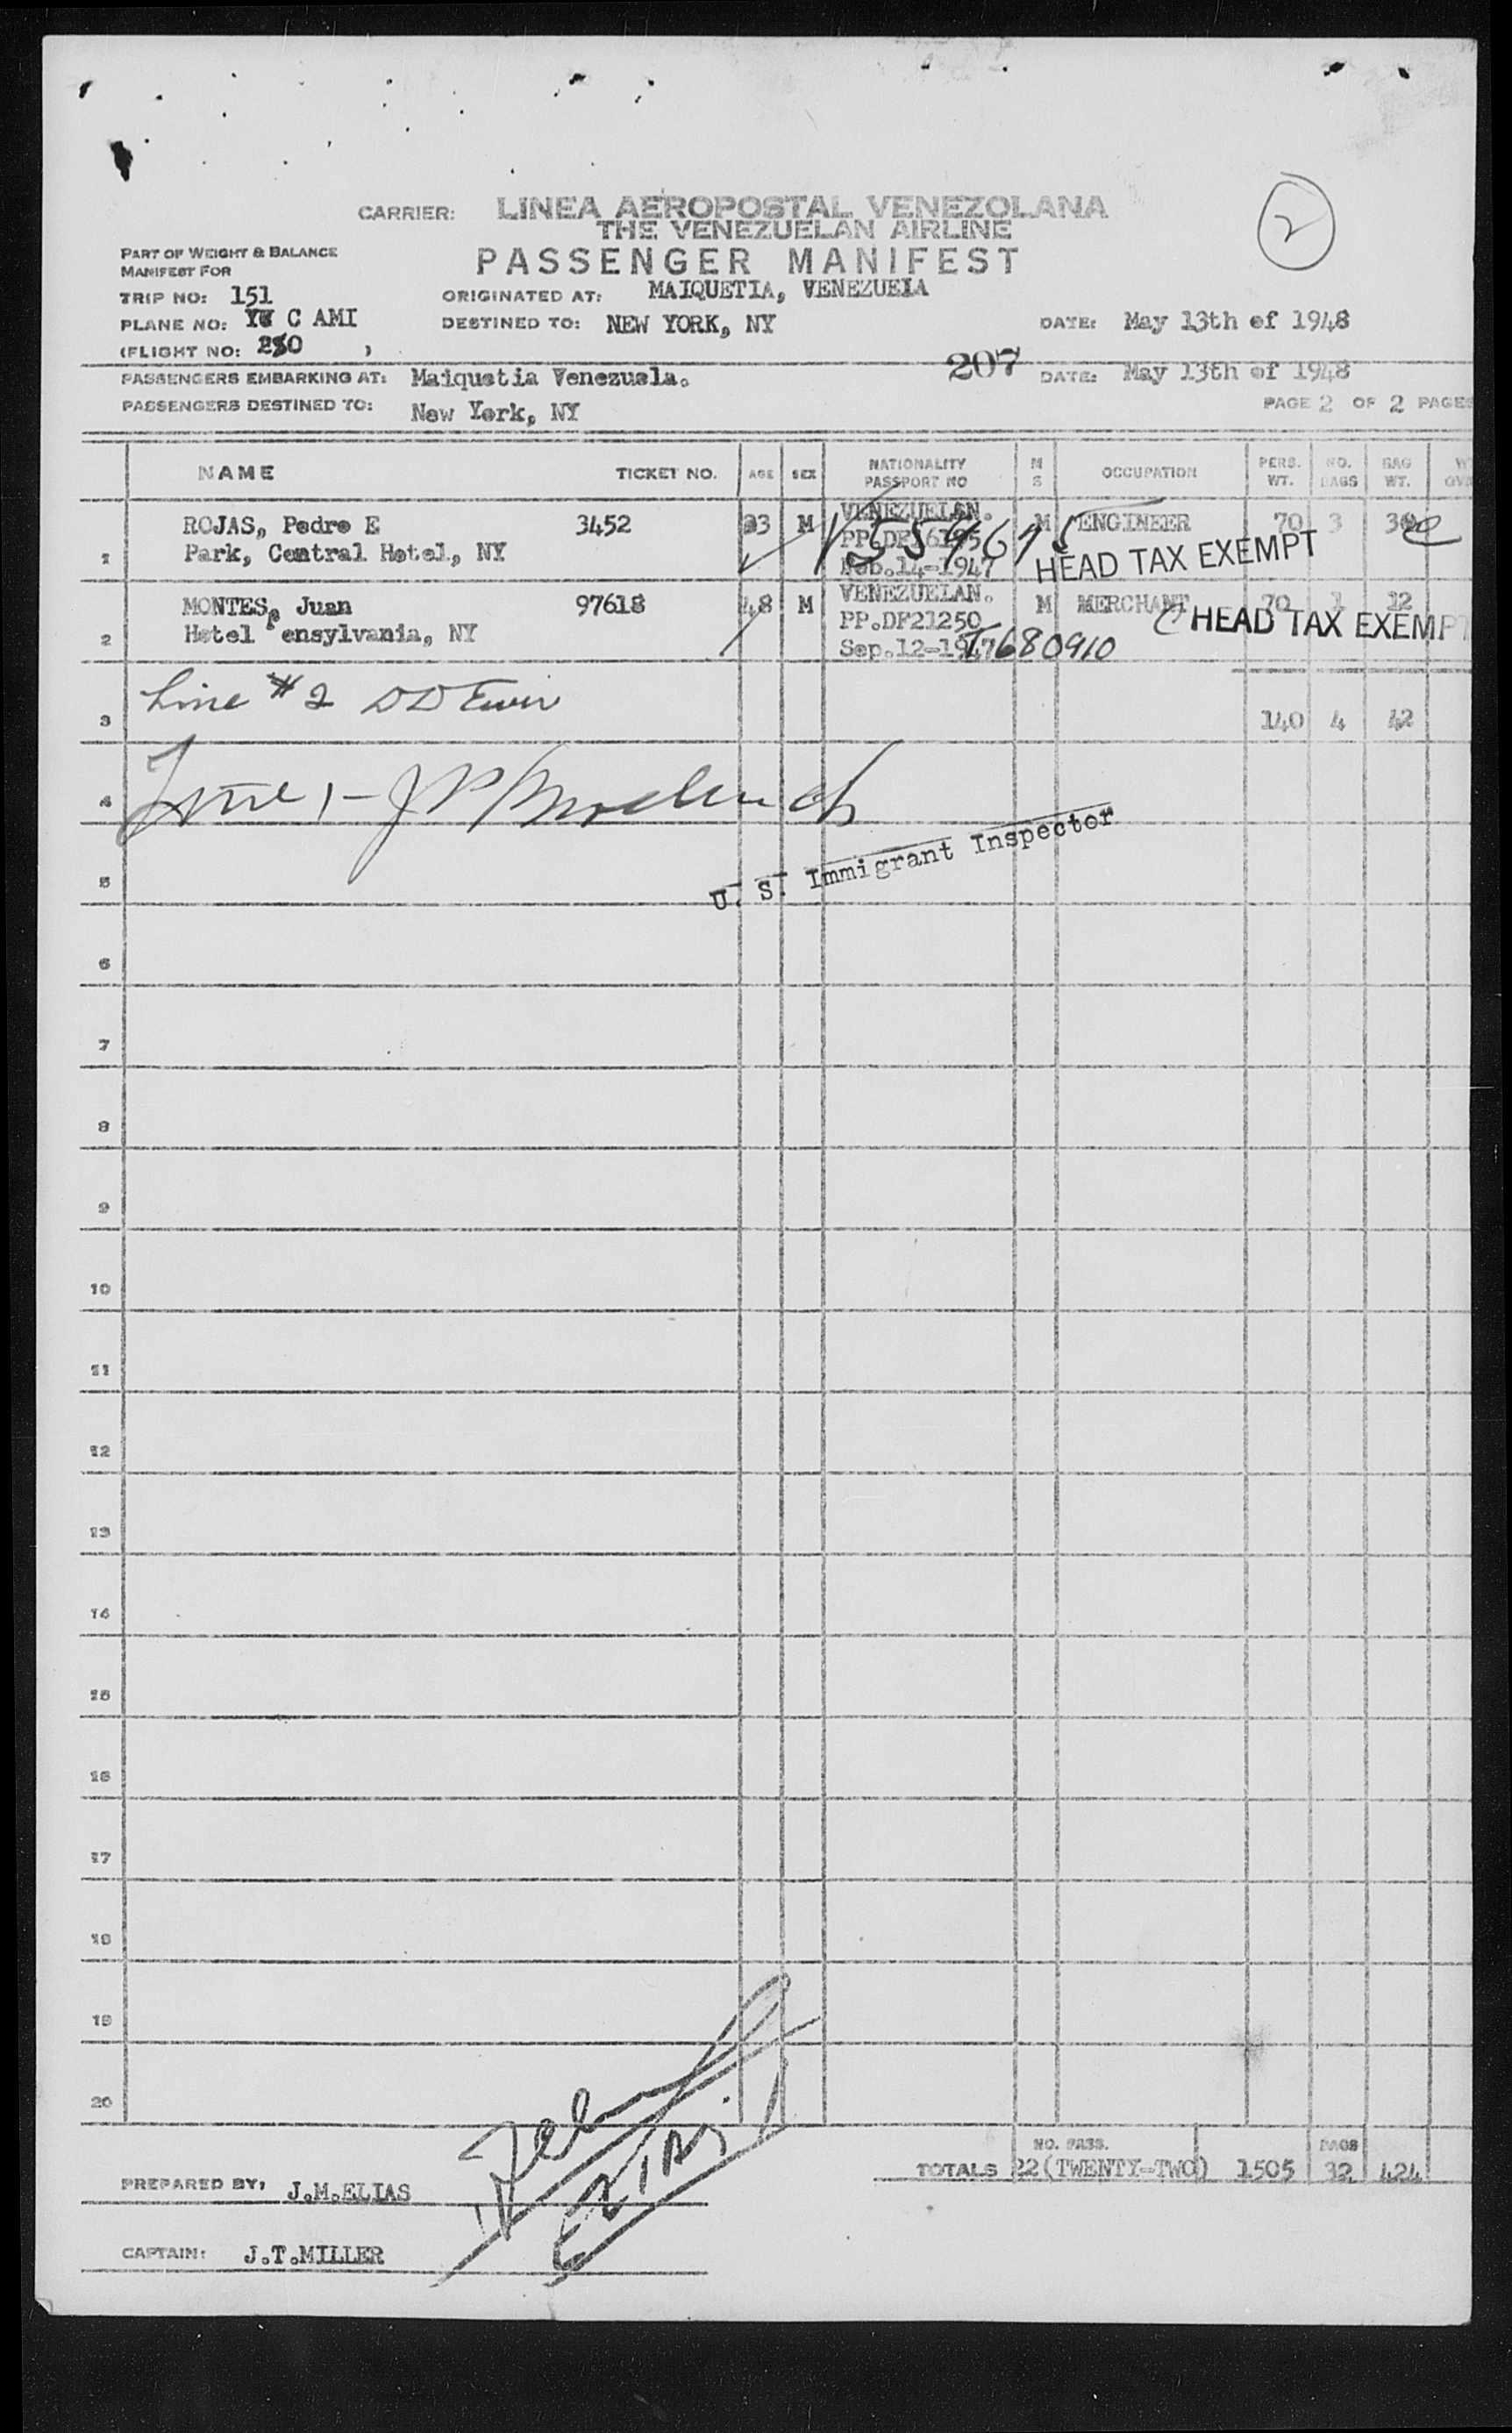 2
CARRIER: LINEA AEROPOSTAL VENEZOLANA
THE VENEZUELAN AIRLINE
PART OF WEIGHT & BALANCE
MANIFEST FOR
PASSENGER MANIFEST
TRIP NO: 151
ORIGINATED AT: MAIQUETIA, VENEZUELA
PLANE NO: C AMI
DESTINED TO: NEW YORK, NY
DATE: May 13th of 1948
(FLIGHT NO: 280 )
207
PASSENGERS EMBARKING AT: Maiquetia Venezuela.
DATE: May 13th of 1948
PASSENGERS DESTINED TO: New York, NY
PAGE 2 OF 2 PAGES
NAME TICKET NO. AGE SEX NATIONALITY PASSPORT NO M S OCCUPATION PERS. WT. NO. BAGS BAG WT.
1 ROJAS, Pedro E 3452 M VENEZUELAN. M ENGINEER 70 3 30
Park, Central Hotel, NY
HEAD TAX EXEMPT
2 MONTES, Juan 97618 48 M VENEZUELAN. M MERCHANT 70 1 12
Hotel Pensylvania, NY PP.DF21250
Sep.12-1947 T680910
HEAD TAX EXEMPT
3 Line #2 140 4 42
4 Line 1-
U. S. Immigrant Inspector
5
6
7
8
9
10
11
12
13
14
15
16
17
18
19
20
NO. PASS. BAGS
TOTALS 22(TWENTY-TWO) 1505 32 424
PREPARED BY: J.M.ELIAS
CAPTAIN: J.T.MILLER